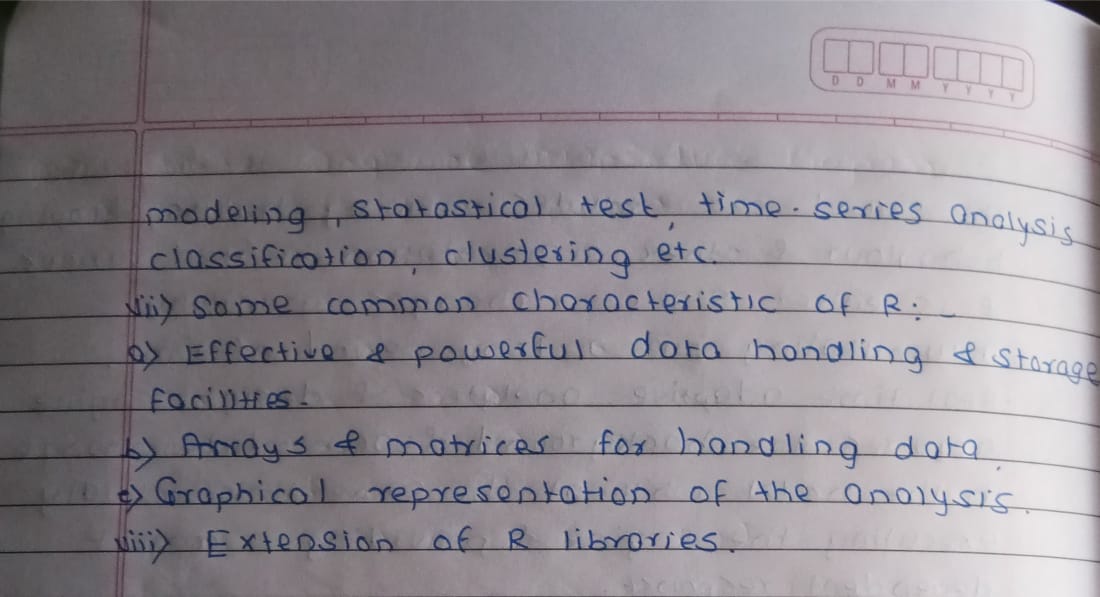 D D M M Y Y Y Y
modeling, statastical test, time-series analysis
classification, clustering etc.
vii) Some common characteristic of R:-
a) Effective & powerful data handling & storage
facilities.
b) Arrays & matrices for handling data.
c) Graphical representation of the analysis.
viii) Extension of R libraries.